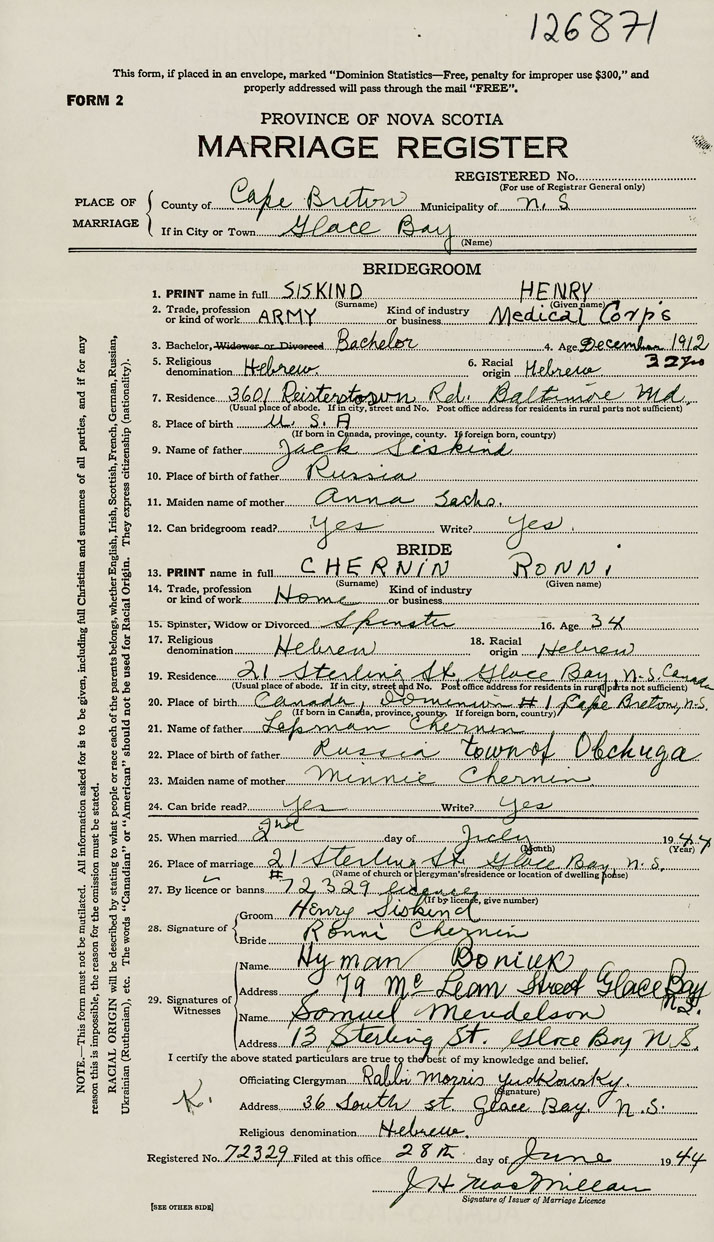 126871
This form, if placed in an envelope, marked "Dominion Statistics—Free, penalty for improper use $300," and
properly addressed will pass through the mail "FREE".
FORM 2
PROVINCE OF NOVA SCOTIA
MARRIAGE REGISTER
REGISTERED No.
(For use of Registrar General only)
PLACE OF MARRIAGE
County of Cape Breton Municipality of N. S
If in City or Town Glace Bay
(Name)
BRIDEGROOM
1. PRINT name in full SISKIND HENRY
(Surname) (Given name)
2. Trade, profession or kind of work ARMY Kind of industry or business Medical Corp's
3. Bachelor, Widower or Divorced Bachelor 4. Age December 1912
32 yrs
5. Religious denomination Hebrew. 6. Racial origin Hebrew
7. Residence 3601 Reisterstown Rd. Baltimore Md.
(Usual place of abode. If in city, street and No. Post office address for residents in rural parts not sufficient)
8. Place of birth U. S. A
(If born in Canada, province, county. If foreign born, country)
9. Name of father Jack Siskind
10. Place of birth of father Russia
11. Maiden name of mother Anna Sachs.
12. Can bridegroom read? Yes Write? Yes.
BRIDE
13. PRINT name in full CHERNIN RONNI
(Surname) (Given name)
14. Trade, profession or kind of work Home Kind of industry or business
15. Spinster, Widow or Divorced Spinster 16. Age 34
17. Religious denomination Hebrew 18. Racial origin Hebrew
19. Residence 21 Sterling St, Glace Bay, N.S. Canada
(Usual place of abode. If in city, street and No. Post office address for residents in rural parts not sufficient)
20. Place of birth Canada, Dominion #1 Cape Breton, N.S.
(If born in Canada, province, county. If foreign born, country)
21. Name of father Chernin
22. Place of birth of father Russia town of Obchuga
23. Maiden name of mother Minnie Chernin
24. Can bride read? Yes Write? Yes
25. When married 2nd day of July 1944
(Month) (Year)
26. Place of marriage 21 Sterling St. Glace Bay, N. S.
(Name of church or clergyman's residence or location of dwelling house)
27. By licence or banns # 72329 licence
(If by license, give number)
28. Signature of
Groom Henry Siskind
Bride Ronni Chernin
29. Signatures of Witnesses
Name Hyman Boniuk
Address 79 McLean Street Glace Bay N.S.
Name Samuel Mendelson
Address 13 Sterling St. Glace Bay N.S.
I certify the above stated particulars are true to the best of my knowledge and belief.
Officiating Clergyman Rabbi Morris Yudkovsky.
(Signature)
K.
Address 36 South st. Glace Bay. N.S.
Religious denomination Hebrew.
Registered No. 72329 Filed at this office 28th day of June 1944
J H MacMillan
Signature of Issuer of Marriage Licence
[SEE OTHER SIDE]
NOTE.—This form must not be mutilated. All information asked for is to be given, including full Christian and surnames of all parties, and if for any
reason this is impossible, the reason for the omission must be stated.
RACIAL ORIGIN will be described by stating to what people or race each of the parents belongs, whether English, Irish, Scottish, French, German, Russian,
Ukrainian (Ruthenian), etc. The words "Canadian" or "American" should not be used for Racial Origin. They express citizenship (nationality).